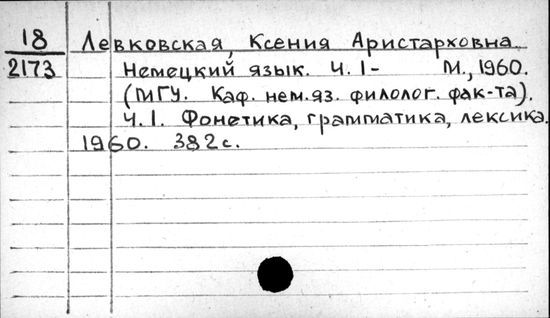 18 Левковская, Ксения Аристарховна.
2173 Немецкий язык. Ч.1- М., 1960.
(МГУ. Каф. нем.яз. филолог. фак-та).
Ч.1. Фонетика, грамматика, лексика.
1960. 382с.